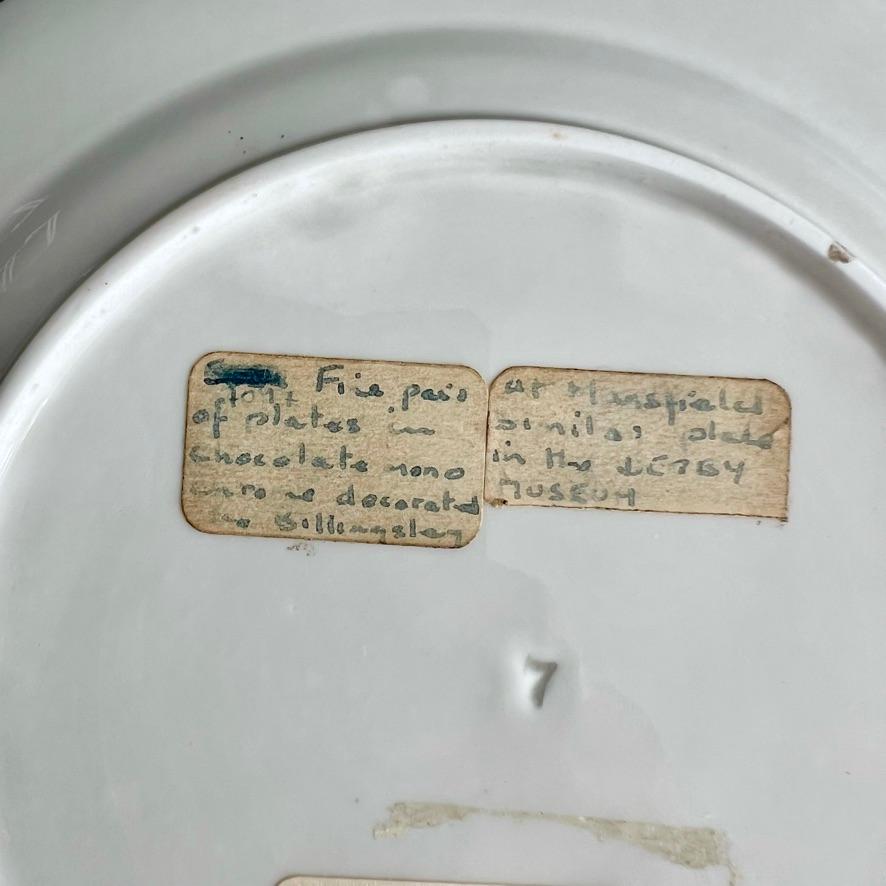 Fine pair
of plates in
chocolate mono
chrome decorated
by Billingsley
at Mansfield
similar plate
in the DERBY
MUSEUM
7